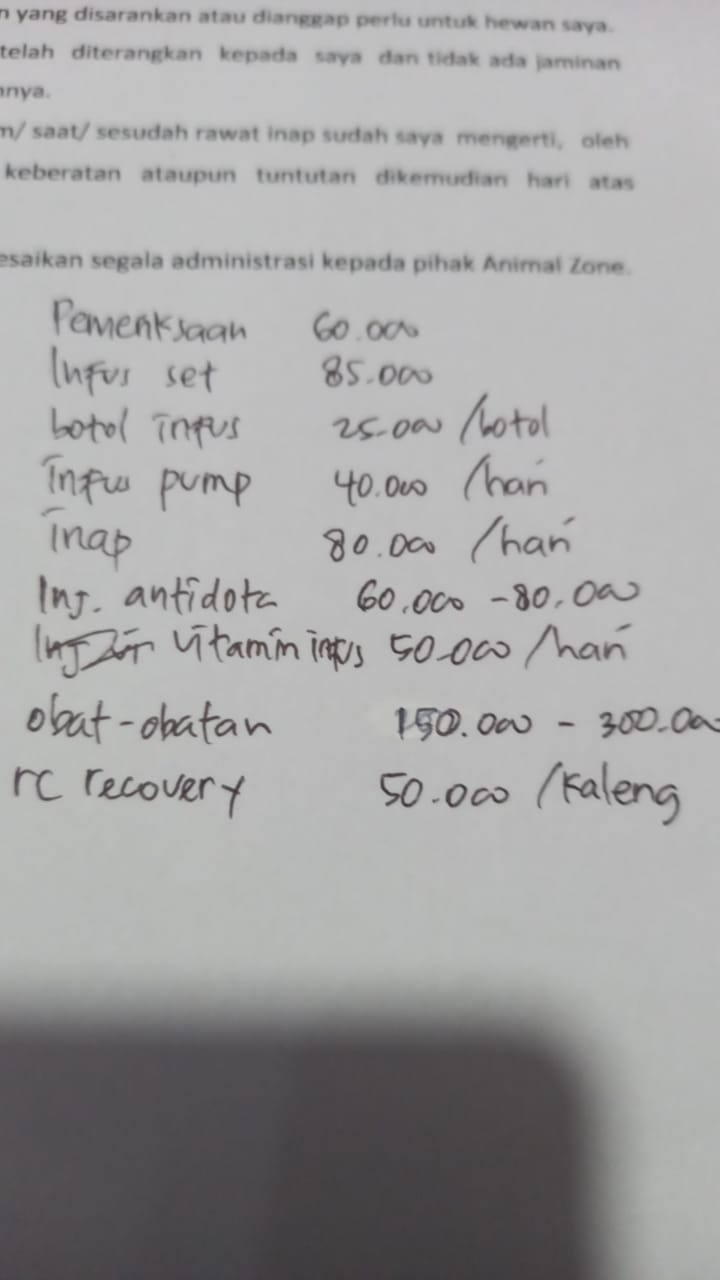 yang disarankan atau dianggap perlu untuk hewan saya.
telah diterangkan kepada saya dan tidak ada jaminan
nya.
m/ saat/ sesudah rawat inap sudah saya mengerti, oleh
keberatan ataupun tuntutan dikemudian hari atas
esaikan segala administrasi kepada pihak Animal Zone.
Pemeriksaan 60.000
Infus set 85.000
botol infus 25.000 /botol
infus pump 40.000 /hari
inap 80.000 /hari
Inj. antidota 60.000 - 80.000
vitamin infus 50.000 /hari
obat-obatan 150.000 - 300.00
rc recovery 50.000 /kaleng